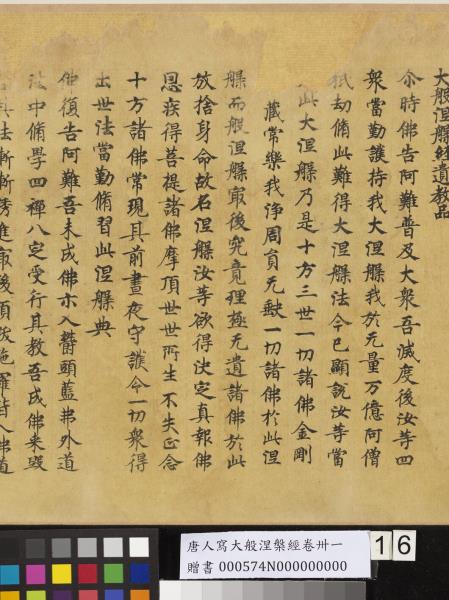 大般涅槃經遺教品
尒時佛告阿難普及大衆吾滅度後汝等四
衆當勤護持我大涅槃我於无量万億阿僧
祇劫脩此難得大涅槃法今已顯說汝等當
此大涅槃乃是十方三世一切諸佛金剛
藏常樂我淨周員无缺一切諸佛於此涅
槃而般涅槃寂後究竟理極无遺諸佛於此
放捨身命故名涅槃汝等欲得決定真報佛
恩疾得菩提諸佛摩頂世世所生不失正念
十方諸佛常現其前晝夜守護令一切衆得
出世法當勤脩習此涅槃典
佛復告阿難吾未成佛示入欝頭藍弗外道
法中脩學四禪八定受行其教吾成佛来毀
其法漸漸誘進寂後須跋陀羅皆入佛道
唐人寫大般涅槃經卷卅一
贈書 000574N000000000
16